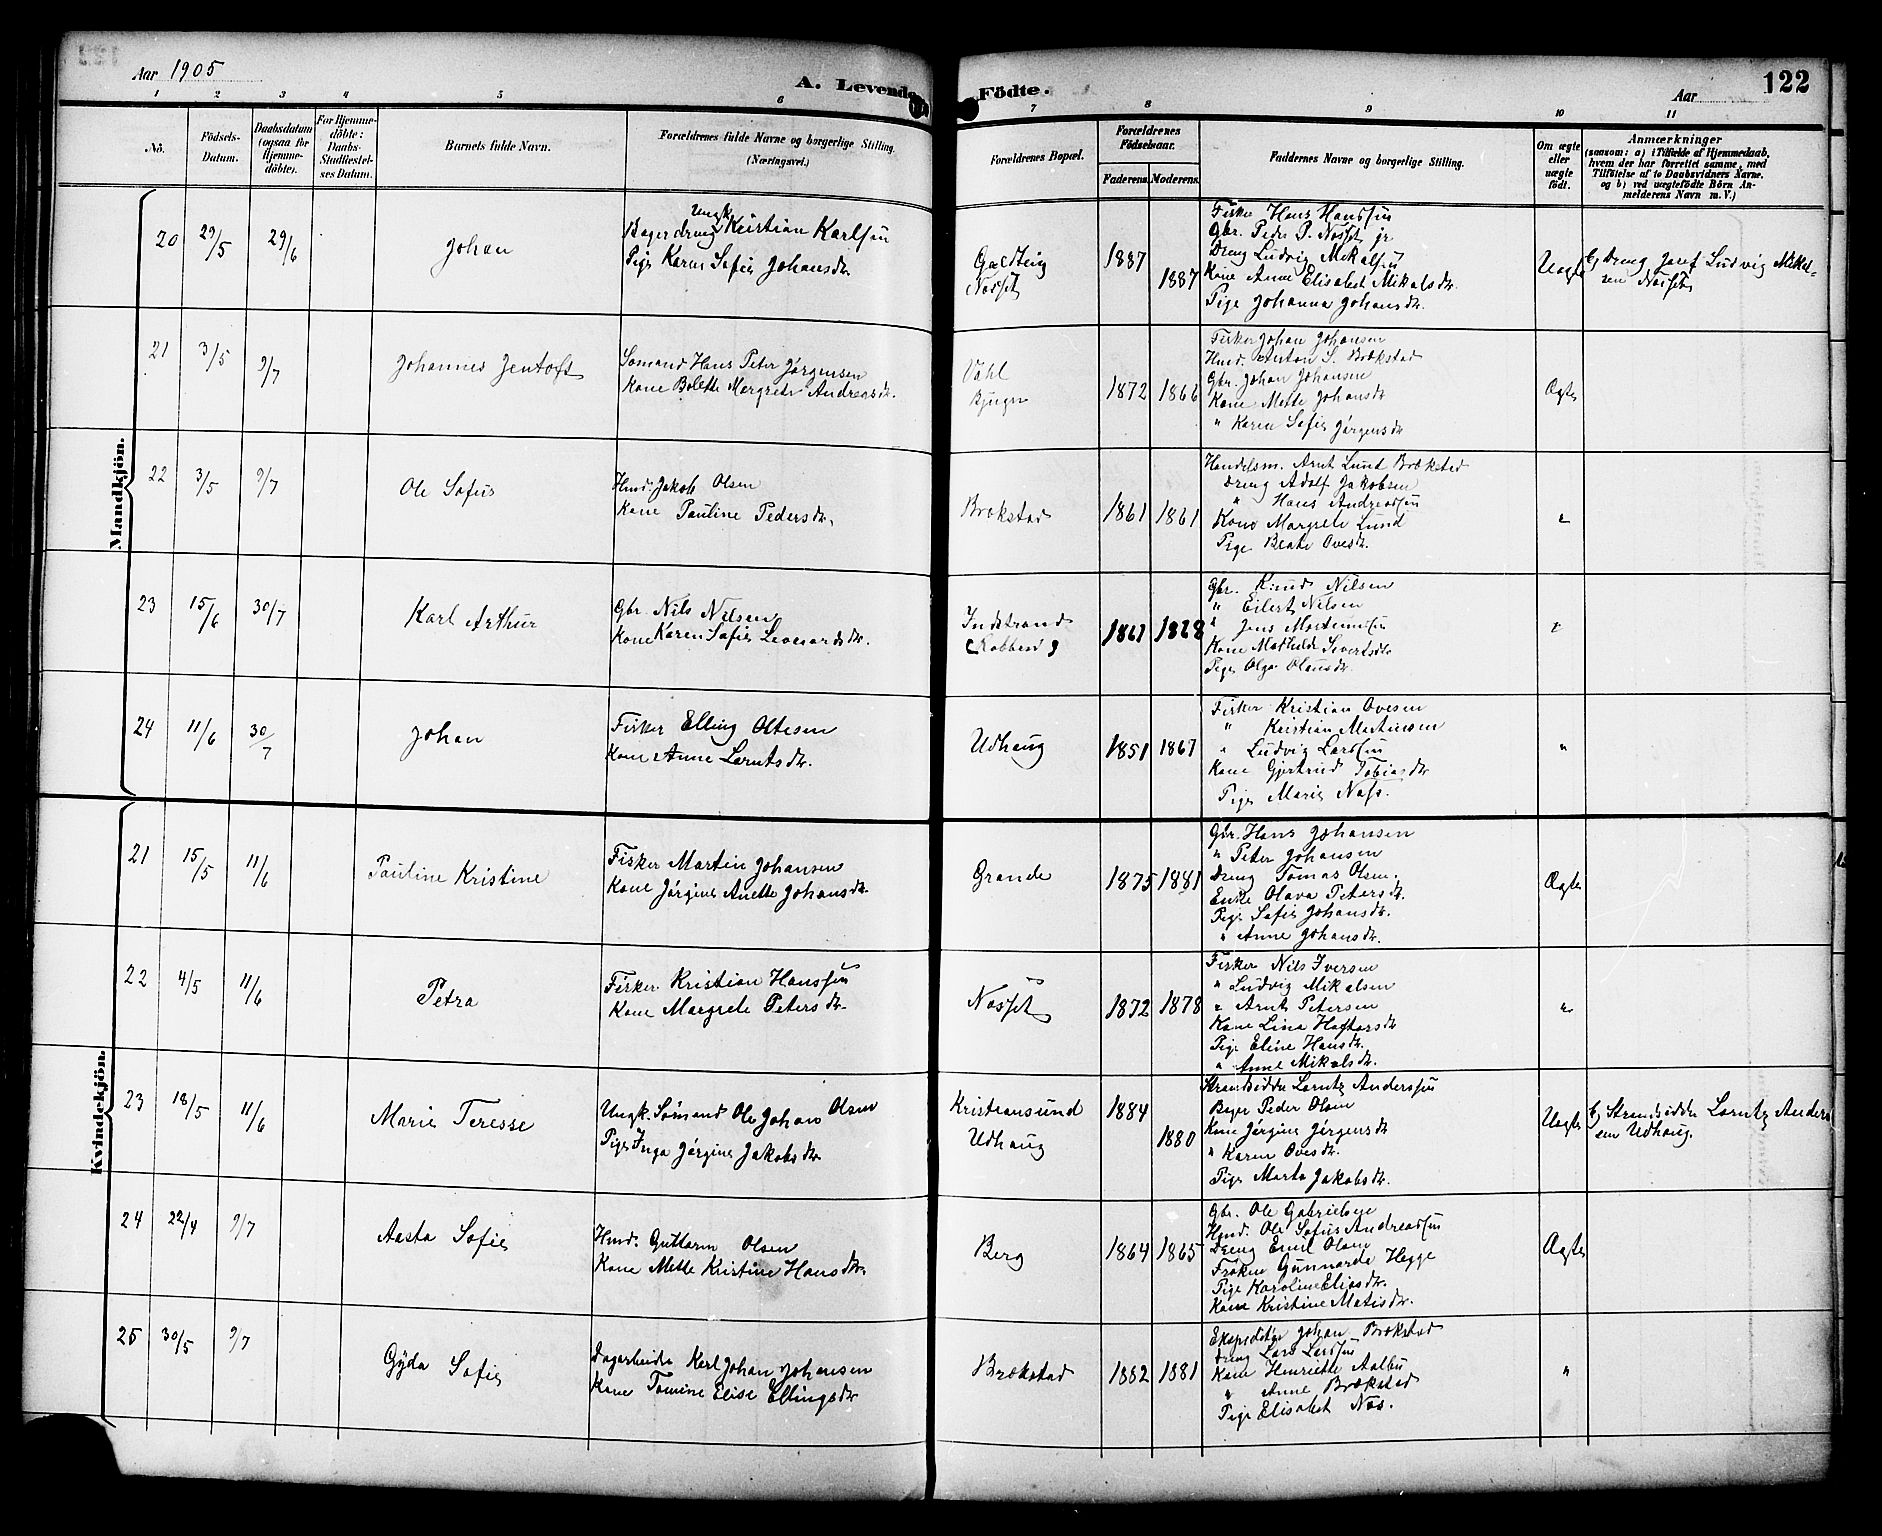 Aar 1905
A. Levende Födte.
Aar
122
1 2 3 4 5 6 7 8 9 10 11
No.
Födsels-Datum.
Daabsdatum (ogsaa for Hjemme-döbte).
For Hjemme-döbte: Daabs-Stadfæstel-ses Datum.
Barnets fulde Navn.
Forældrenes fulde Navne og borgerlige Stilling.
(Næringsvei.)
Forældrenes Bopæl.
Forældrenes Födselsaar.
Faderens. Moderens.
Faddernes Navne og borgerlige Stilling.
Om ægte eller uægte födt.
Anmærkninger
(saasom: a) i Tilfælde af Hjemmedaab,
hvem der har forrettet samme, med
Tilföielse af to Daabsvidners Navne.
og b) ved uægtefödte Börn An-
melderens Navn m. V.)
Mandkjön.
20 29/5 29/6 Johan
Ungk.
Bagerdreng Kristian Karlsen
Pige Karen Sofie Johansdtr.
Næsset
1887 1887
Fisker Hans Hanssen
Gbr. Peder P. Næsset jr
Dreng Ludvig Mikalsen
Kone Anne Elisabet Mikalsdtr.
Pige Johanna Johansdtr.
Uægte
b) Dreng Josef Ludvig Mikal-
sen Næsset
21 3/5 9/7 Johannes Jentoft
Sømand Hans Peter Jørgensen
Kone Bolette Margrete Andreasdtr.
Vahl
Bjugn
1872 1866
Fisker Johan Johansen
Hmd. Anton S. Brækstad
Gbr. Johan Johansen
Kone Mette Johansdtr
" Karen Sofie Jørgensdtr
Ægte
22 3/5 9/7 Ole Sofus
Hmd. Jakob Olsen
Kone Pauline Pedersdtr.
Brækstad
1861 1861
Handelsm. Arnt Lund Brækstad
Dreng Adolf Jakobsen
" Hans Andreassen
Kone Margrete Lund
Pige Beate Ovesdtr.
"
23 15/6 30/7 Karl Arthur
Gbr. Nils Nilsen
Kone Karen Sofie Levorsdtr.
Indstrand
(Robben)
1861 1868
Gbr. Knud Nilsen
" Eilert Nilsen
" Jens Mortensen
Kone Mathilde Sivertsdtr
Pige Olga Olausdtr.
"
24 11/6 30/7 Johan
Fisker Elling Oltesen
Kone Anne Lorntsdtr.
Udhaug
1851 1867
Fisker Kristian Ovesen
" Kristian Martinsen
" Ludvig Larssen
Kone Gjertrud Tobiasdtr
Pige Marie Næss.
"
Kvindekjön.
21 15/5 11/6 Pauline Kristine
Fisker Martin Johansen
Kone Jørgine Anette Johansdtr.
Grande
1875 1881
Gbr. Hans Johansen
" Peter Johansen
Dreng Tomas Olsen.
Enke Olava Petersdtr.
Pige Sofie Johansdtr.
" Anne Johansdtr.
Ægte
22 4/5 11/6 Petra
Fisker Kristian Hanssen
Kone Margrete Petersdtr.
Næsset
1872 1878
Fisker Nils Iversen
" Ludvig Mikalsen
" Arnt Petersen
Kone Lina Haftorsdtr
Pige Eline Hansdtr.
" Anne Mikalsdtr.
"
23 18/5 11/6 Marie Teresse
Ungk. Sømand Ole Johan Olsen
Pige Inga Jørgine Jakobsdtr.
Kristiansund
Udhaug
1884 1880
Strandsidder Lorntz Anderssen
Bager Peder Olsen
Kone Jørgine Jørgensdtr
" Karen Ovesdtr.
Pige Marta Jakobsdtr.
Uægte
b) Strandsidder Lorntz Anders
sen Udhaug.
24 22/4 9/7 Aasta Sofie
Hmd. Guttorm Olsen
Kone Mette Kristine Hansdtr.
Berg
1864 1865
Gbr. Ole Gabrielsen
Hmd. Ole Sofus Andreassen
Dreng Emil Olsen
Frøken Gunnarda Hegge
Pige Karoline Eliasdtr.
Kone Kristine Matisdtr.
Ægte
25 30/5 9/7 Gyda Sofie
Dagarbeider Karl Johan Johansen
Kone Tomine Elise Ellingsdtr
Brækstad
1882 1881
Ekspeditør Johan Brækstad
Dreng Lars Larssen
Kone Henriette Aalbu
" Anne Brækstad
Pige Elisabet Næs.
"